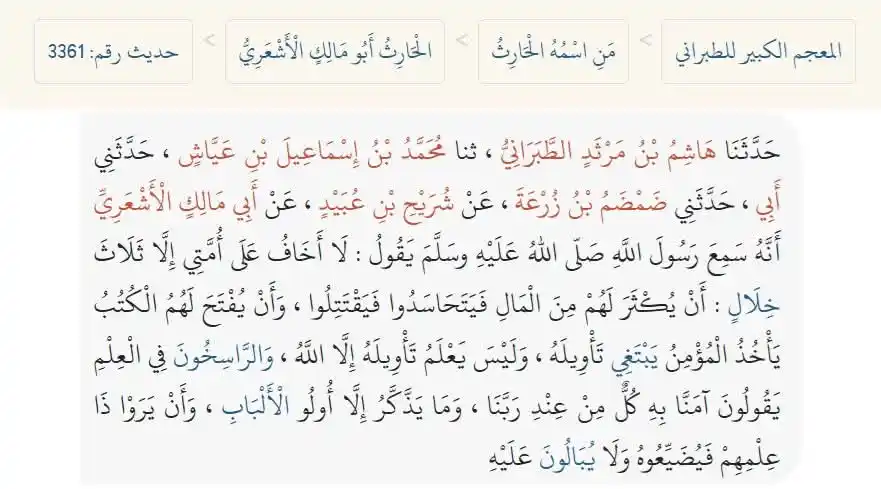 المعجم الكبير للطبراني > مَنِ اسْمُهُ الْحَارِثُ > الْحَارِثُ أَبُو مَالِكٍ الْأَشْعَرِيُّ > حديث رقم: 3361
حَدَّثَنَا هَاشِمُ بْنُ مَرْثَدٍ الطَّبَرَانِيُّ ، ثنا مُحَمَّدُ بْنُ إِسْمَاعِيلَ بْنِ عَيَّاشٍ ، حَدَّثَنِي
أَبِي ، حَدَّثَنِي ضَمْضَمُ بْنُ زُرْعَةَ ، عَنْ شُرَيْحِ بْنِ عُبَيْدٍ ، عَنْ أَبِي مَالِكٍ الْأَشْعَرِيِّ
أَنَّهُ سَمِعَ رَسُولَ اللَّهِ صَلَّى اللهُ عَلَيْهِ وسَلَّمَ يَقُولُ : لَا أَخَافُ عَلَى أُمَّتِي إِلَّا ثَلَاثَ
خِلَالٍ : أَنْ يُكْثَرَ لَهُمْ مِنَ الْمَالِ فَيَتَحَاسَدُوا فَيَقْتَتِلُوا ، وَأَنْ يُفْتَحَ لَهُمُ الْكُتُبُ
يَأْخُذُ الْمُؤْمِنُ يَبْتَغِي تَأْوِيلَهُ ، وَلَيْسَ يَعْلَمُ تَأْوِيلَهُ إِلَّا اللَّهُ ، وَالرَّاسِخُونَ فِي الْعِلْمِ
يَقُولُونَ آمَنَّا بِهِ كُلٌّ مِنْ عِنْدِ رَبَّنَا ، وَمَا يَذَّكَّرُ إِلَّا أُولُو الْأَلْبَابِ ، وَأَنْ يَرَوْا ذَا
عِلْمِهِمْ فَيُضَيِّعُوهُ وَلَا يُبَالُونَ عَلَيْهِ